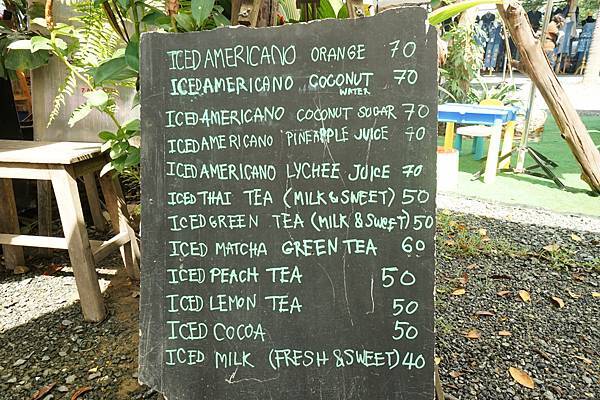 ICED AMERICANO ORANGE 70
ICED AMERICANO COCONUT WATER 70
ICED AMERICANO COCONUT SUGAR 70
ICED AMERICANO PINEAPPLE JUICE 70
ICED AMERICANO LYCHEE JUICE 70
ICED THAI TEA (MILK & SWEET) 50
ICED GREEN TEA (MILK & SWEET) 50
ICED MATCHA GREEN TEA 60
ICED PEACH TEA 50
ICED LEMON TEA 50
ICED COCOA 50
ICED MILK (FRESH & SWEET) 40